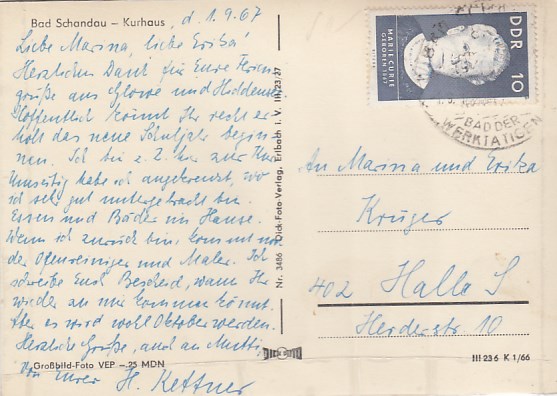 Bad Schandau – Kurhaus, d. 1.9.67
Liebe Marina, liebe Erika!
Herzlichen Dank für Eure Ferien-
grüße aus Glowe und Hiddens
Hoffentlich könnt Ihr recht er-
holt das neue Schuljahr begin-
nen. Ich bin z. Z. hier zur Kur
Umseitig habe ich angekreuzt, wo
ich sehr gut untergebracht bin.
Essen und Bäder im Hause.
Wenn ich zurück bin, kommt
der Ofenreiniger und Maler. Ich
schreibe Euch Bescheid, wann Ihr
wieder zu mir kommen könnt.
Aber es wird wohl Oktober werden.
Herzliche Grüße, auch an Mutti,
von Eurer H. Kettner
Großbild-Foto VEP –.25 MDN
Nr. 3486 Dick-Foto-Verlag, Erlbach i. V. III/23/27
MARIE CURIE
GEBOREN 1867
DDR
10
BAD DER
WERKTÄTIGEN
An Marina und Erika
Krüger
402 Halle S
Herderstr. 10
III 23 6 K 1/66